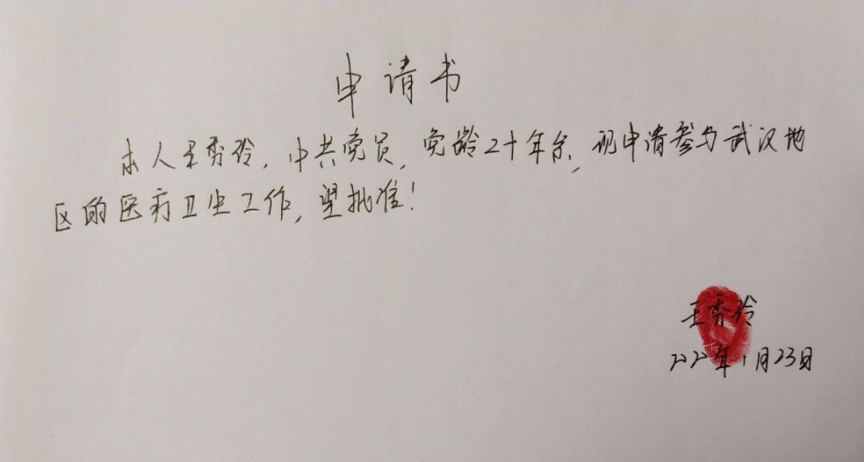 申请书
本人王秀玲,中共党员,党龄二十年余,现申请参与武汉地
区的医疗卫生工作,望批准!
王秀玲
2020年1月23日